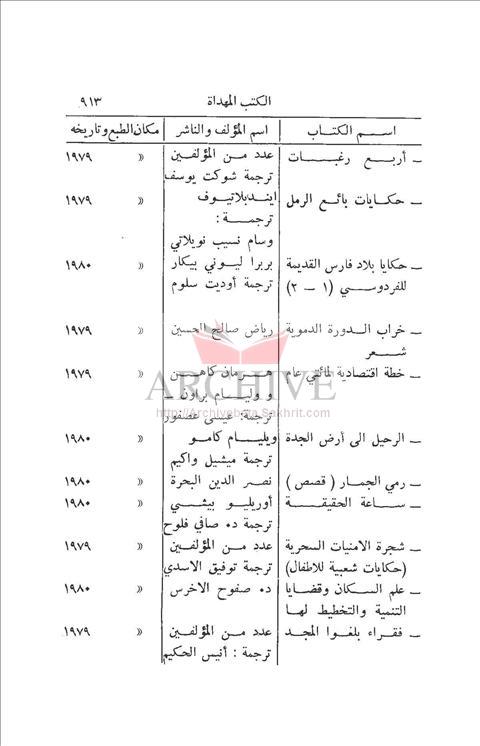 الكتب المهداة ٩١٣
اسم الكتاب اسم المؤلف والناشر مكان الطبع وتاريخه
ـ أربع رغبات عدد من المؤلفين « ١٩٧٩
ترجمة شوكت يوسف
ـ حكايات بائع الرمل ايندبلاتيوف « ١٩٧٩
ترجمة :
وسام نسيب نويلاتي
ـ حكايا بلاد فارس القديمة بربرا ليوني بيكار « ١٩٨٠
للفردوسي (١ - ٢) ترجمة أوديت سلوم
ـ خراب الدورة الدموية رياض صالح الحسين « ١٩٧٩
شعر
ـ خطة اقتصادية لمائتي عام هرمان كاهن « ١٩٧٩
ARCHIVE
و وليام براون
http://Archivebeta.Sakhrit.com
ترجمة: عيسى عصفور
ـ الرحيل الى أرض الجدة ويليام كامو « ١٩٨٠
ترجمة ميشيل واكيم
ـ رمي الجمار ( قصص ) نصر الدين البحرة « ١٩٨٠
ـ ساعة الحقيقة أوريليو بيشي « ١٩٨٠
ترجمة د٠ صافي فلوح
ـ شجرة الامنيات السحرية عدد من المؤلفين « ١٩٧٩
(حكايات شعبية للاطفال) ترجمة توفيق الاسدي
ـ علم السكان وقضايا د٠ صفوح الاخرس « ١٩٨٠
التنمية والتخطيط لها
ـ فقراء بلغوا المجد عدد من المؤلفين « ١٩٧٩
ترجمة : أنيس الحكيم